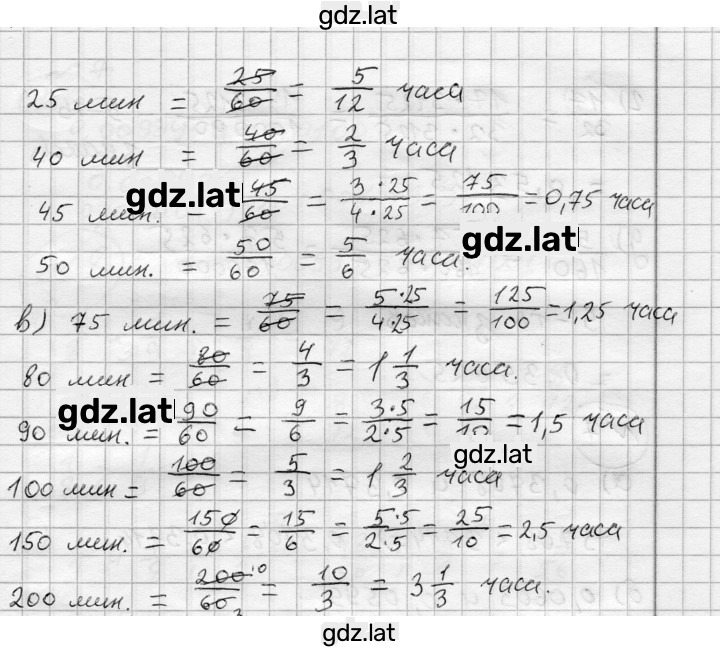 gdz.lat
25 мин = 25/60 = 5/12 часа
40 мин = 40/60 = 2/3 часа
gdz.lat
45 мин. = 45/60 = 3·25/4·25 = 75/100 = 0,75 часа
gdz.lat
50 мин. = 50/60 = 5/6 часа.
в) 75 мин. = 75/60 = 5·25/4·25 = 125/100 = 1,25 часа
80 мин = 80/60 = 4/3 = 1 1/3 часа.
gdz.lat
90 мин. = 90/60 = 9/6 = 3·5/2·5 = 15/10 = 1,5 часа
gdz.lat
100 мин = 100/60 = 5/3 = 1 2/3 часа
150 мин. = 150/60 = 15/6 = 5·5/2·5 = 25/10 = 2,5 часа
200 мин. = 200 10/60 3 = 10/3 = 3 1/3 часа.
gdz.lat